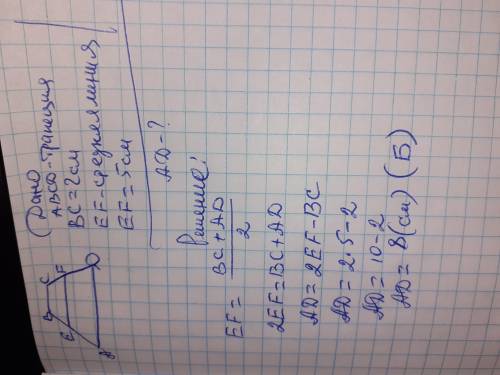 B C
E F
A D
Дано
ABCD-трапеция
BC=2см
EF-средняя линия
EF=5см
AD-?
Решение:
EF = BC+AD / 2
2EF=BC+AD
AD=2EF-BC
AD=2·5-2
AD=10-2
AD=8(см) (Б)